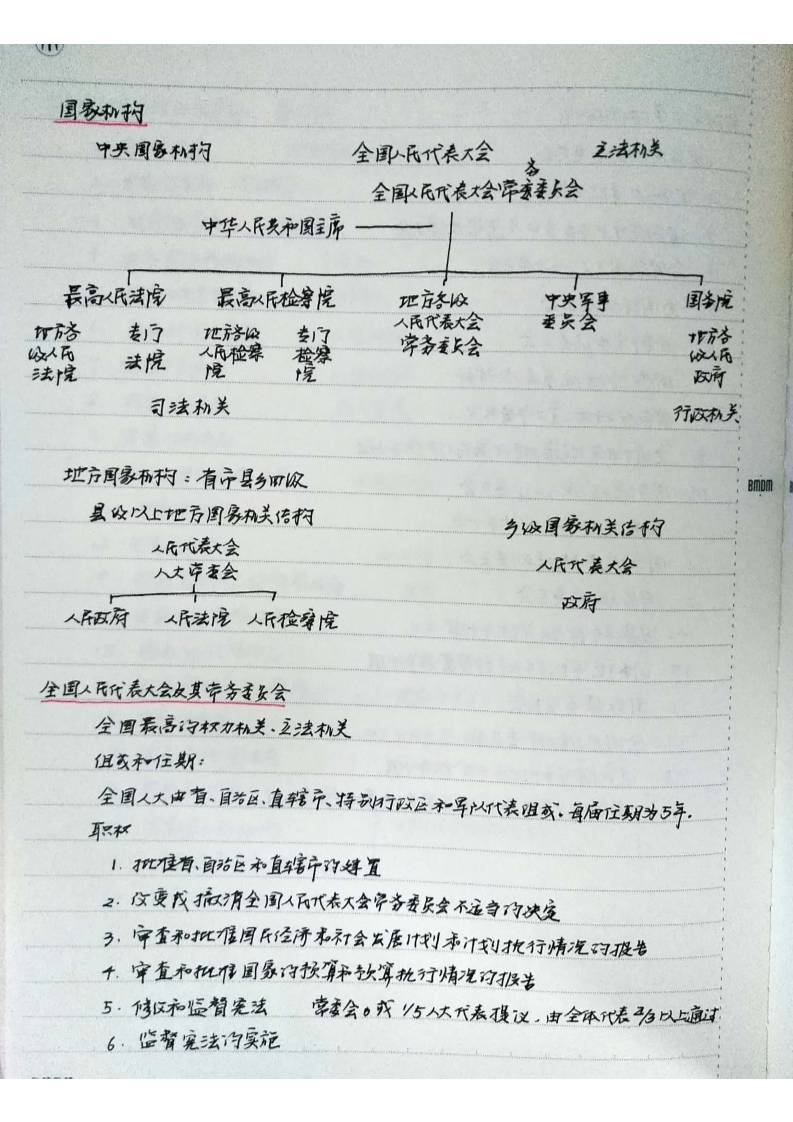 国家机构
中央国家机构 全国人民代表大会 立法机关
全国人民代表大会常务委员会
中华人民共和国主席
最高人民法院 最高人民检察院 地方各级 中央军事 国务院
人民代表大会 委员会
地方各 专门 地方各级 专门 常务委员会 地方各
级人民 法院 人民检察 检察 级人民
法院 院 院 政府
司法机关 行政机关
地方国家机构:有市县乡四级
县级以上地方国家机关结构 乡级国家机关结构
人民代表大会 人民代表大会
人大常委会 政府
人民政府 人民法院 人民检察院
BMDM
全国人民代表大会及其常务委员会
全国最高的权力机关、立法机关
组成和任期:
全国人大由省、自治区、直辖市、特别行政区和军队代表组成。每届任期为5年.
职权
1. 批准省、自治区和直辖市的建置
2. 改变或撤消全国人民代表大会常务委员会不适当的决定
3. 审查和批准国民经济和社会发展计划和计划执行情况的报告
4. 审查和批准国家的预算和预算执行情况的报告
5. 修改和监督宪法 常委会 或 1/5人大代表提议,由全体代表2/3以上通过
6. 监督宪法的实施